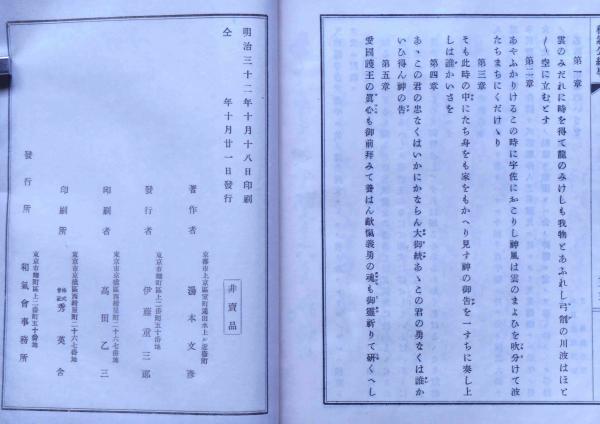 第一章
雲のみだれに時を得て龍のみけしも我物とあふれし弓削の川波はほと
〳〵空に立むとす
第二章
あやふかりけるこの時に宇佐におこりし神風は雲のまよひを吹分けて波
たちまちにくだけゝり
第三章
そも此時の中にたち身をも家をもかへり見す神の御告を一すちに奏し上
しは誰かいさを
第四章
あゝこの君の忠なくはいかにかならん大御統あゝこの君の勇なくは誰か
いひ得ん神の告
第五章
愛國護王の眞心も御前拜みて養はん敵愾義勇の魂も御靈祈りて研くへし
明治三十二年十月十八日印刷
仝 年十月廿一日發行
非賣品
京都市上京區室町通出水上ル近衞町
著作者 湯本文彦
東京市麹町區上二番町五十番地
發行者 伊藤重三郎
東京市京橋區西紺屋町二十六七番地
印刷者 高田乙三
東京市京橋區西紺屋町二十六七番地
印刷所 株式會社 秀英舍
東京市麹町區上二番町五十番地
發行所 和氣會事務所